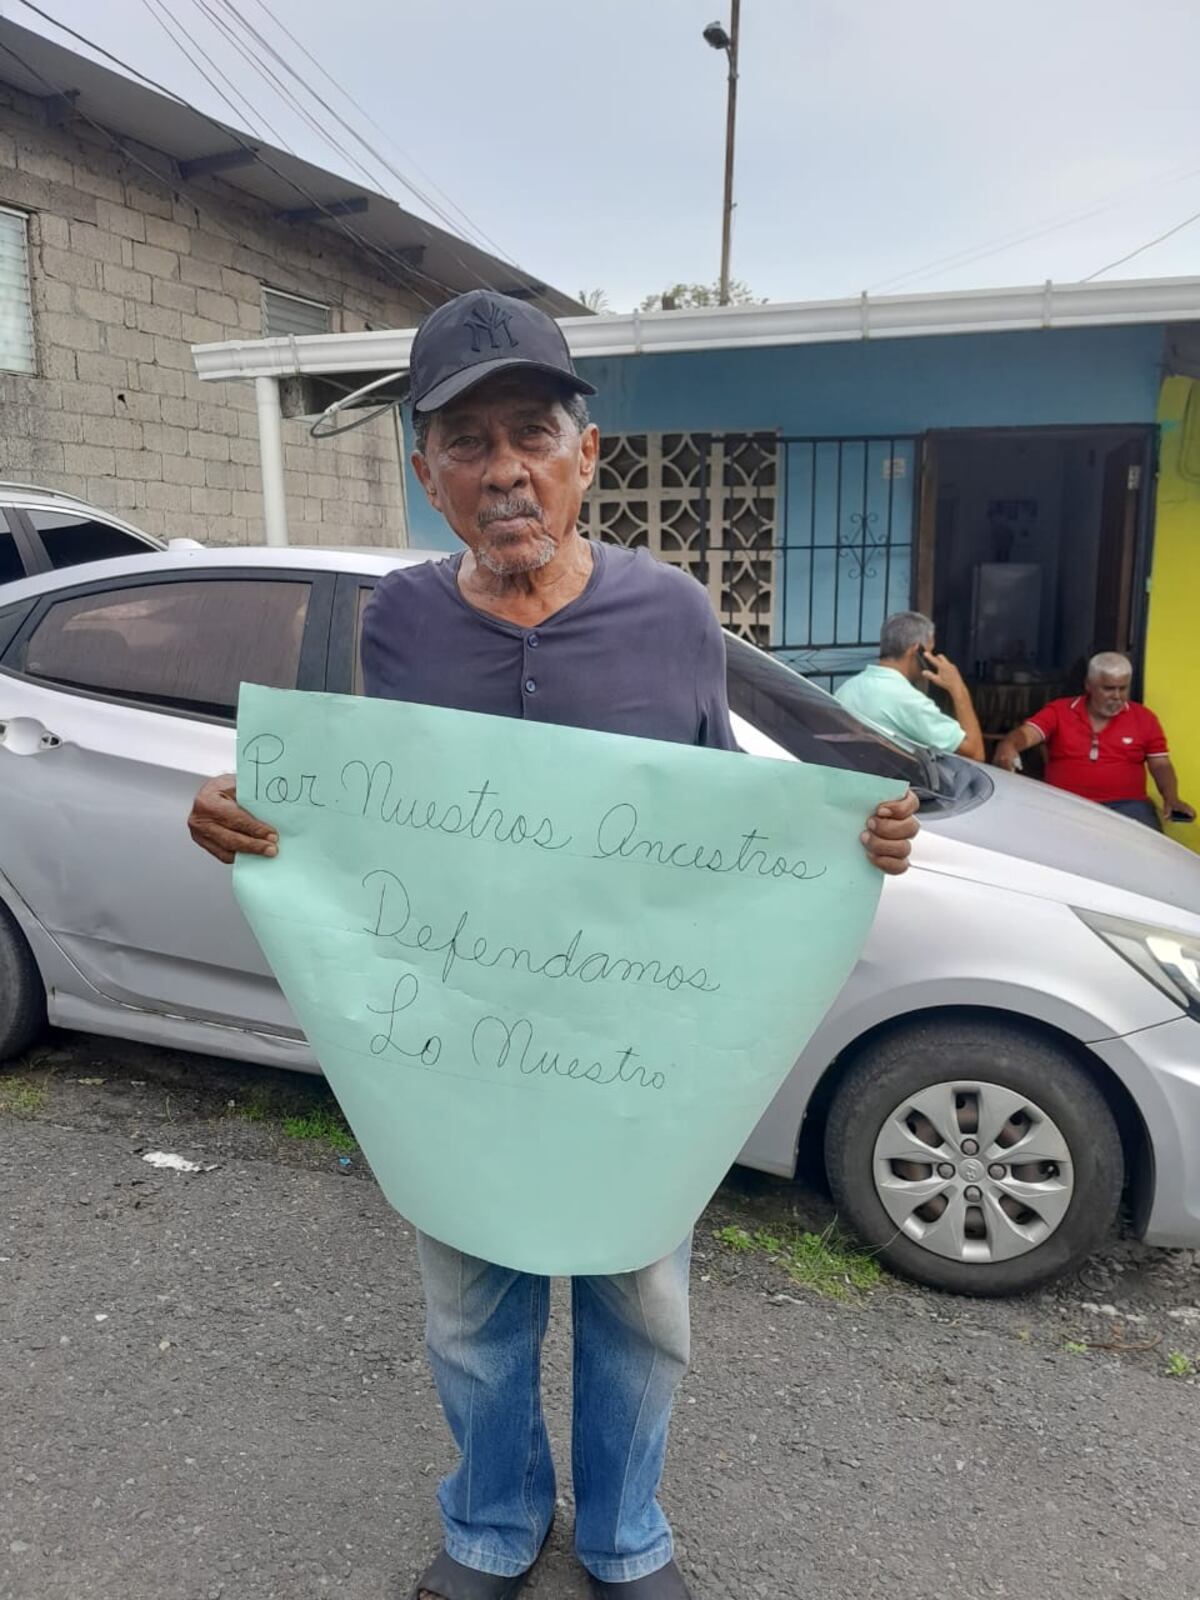 NY
Por Nuestros Ancestros
Defendamos
Lo Nuestro